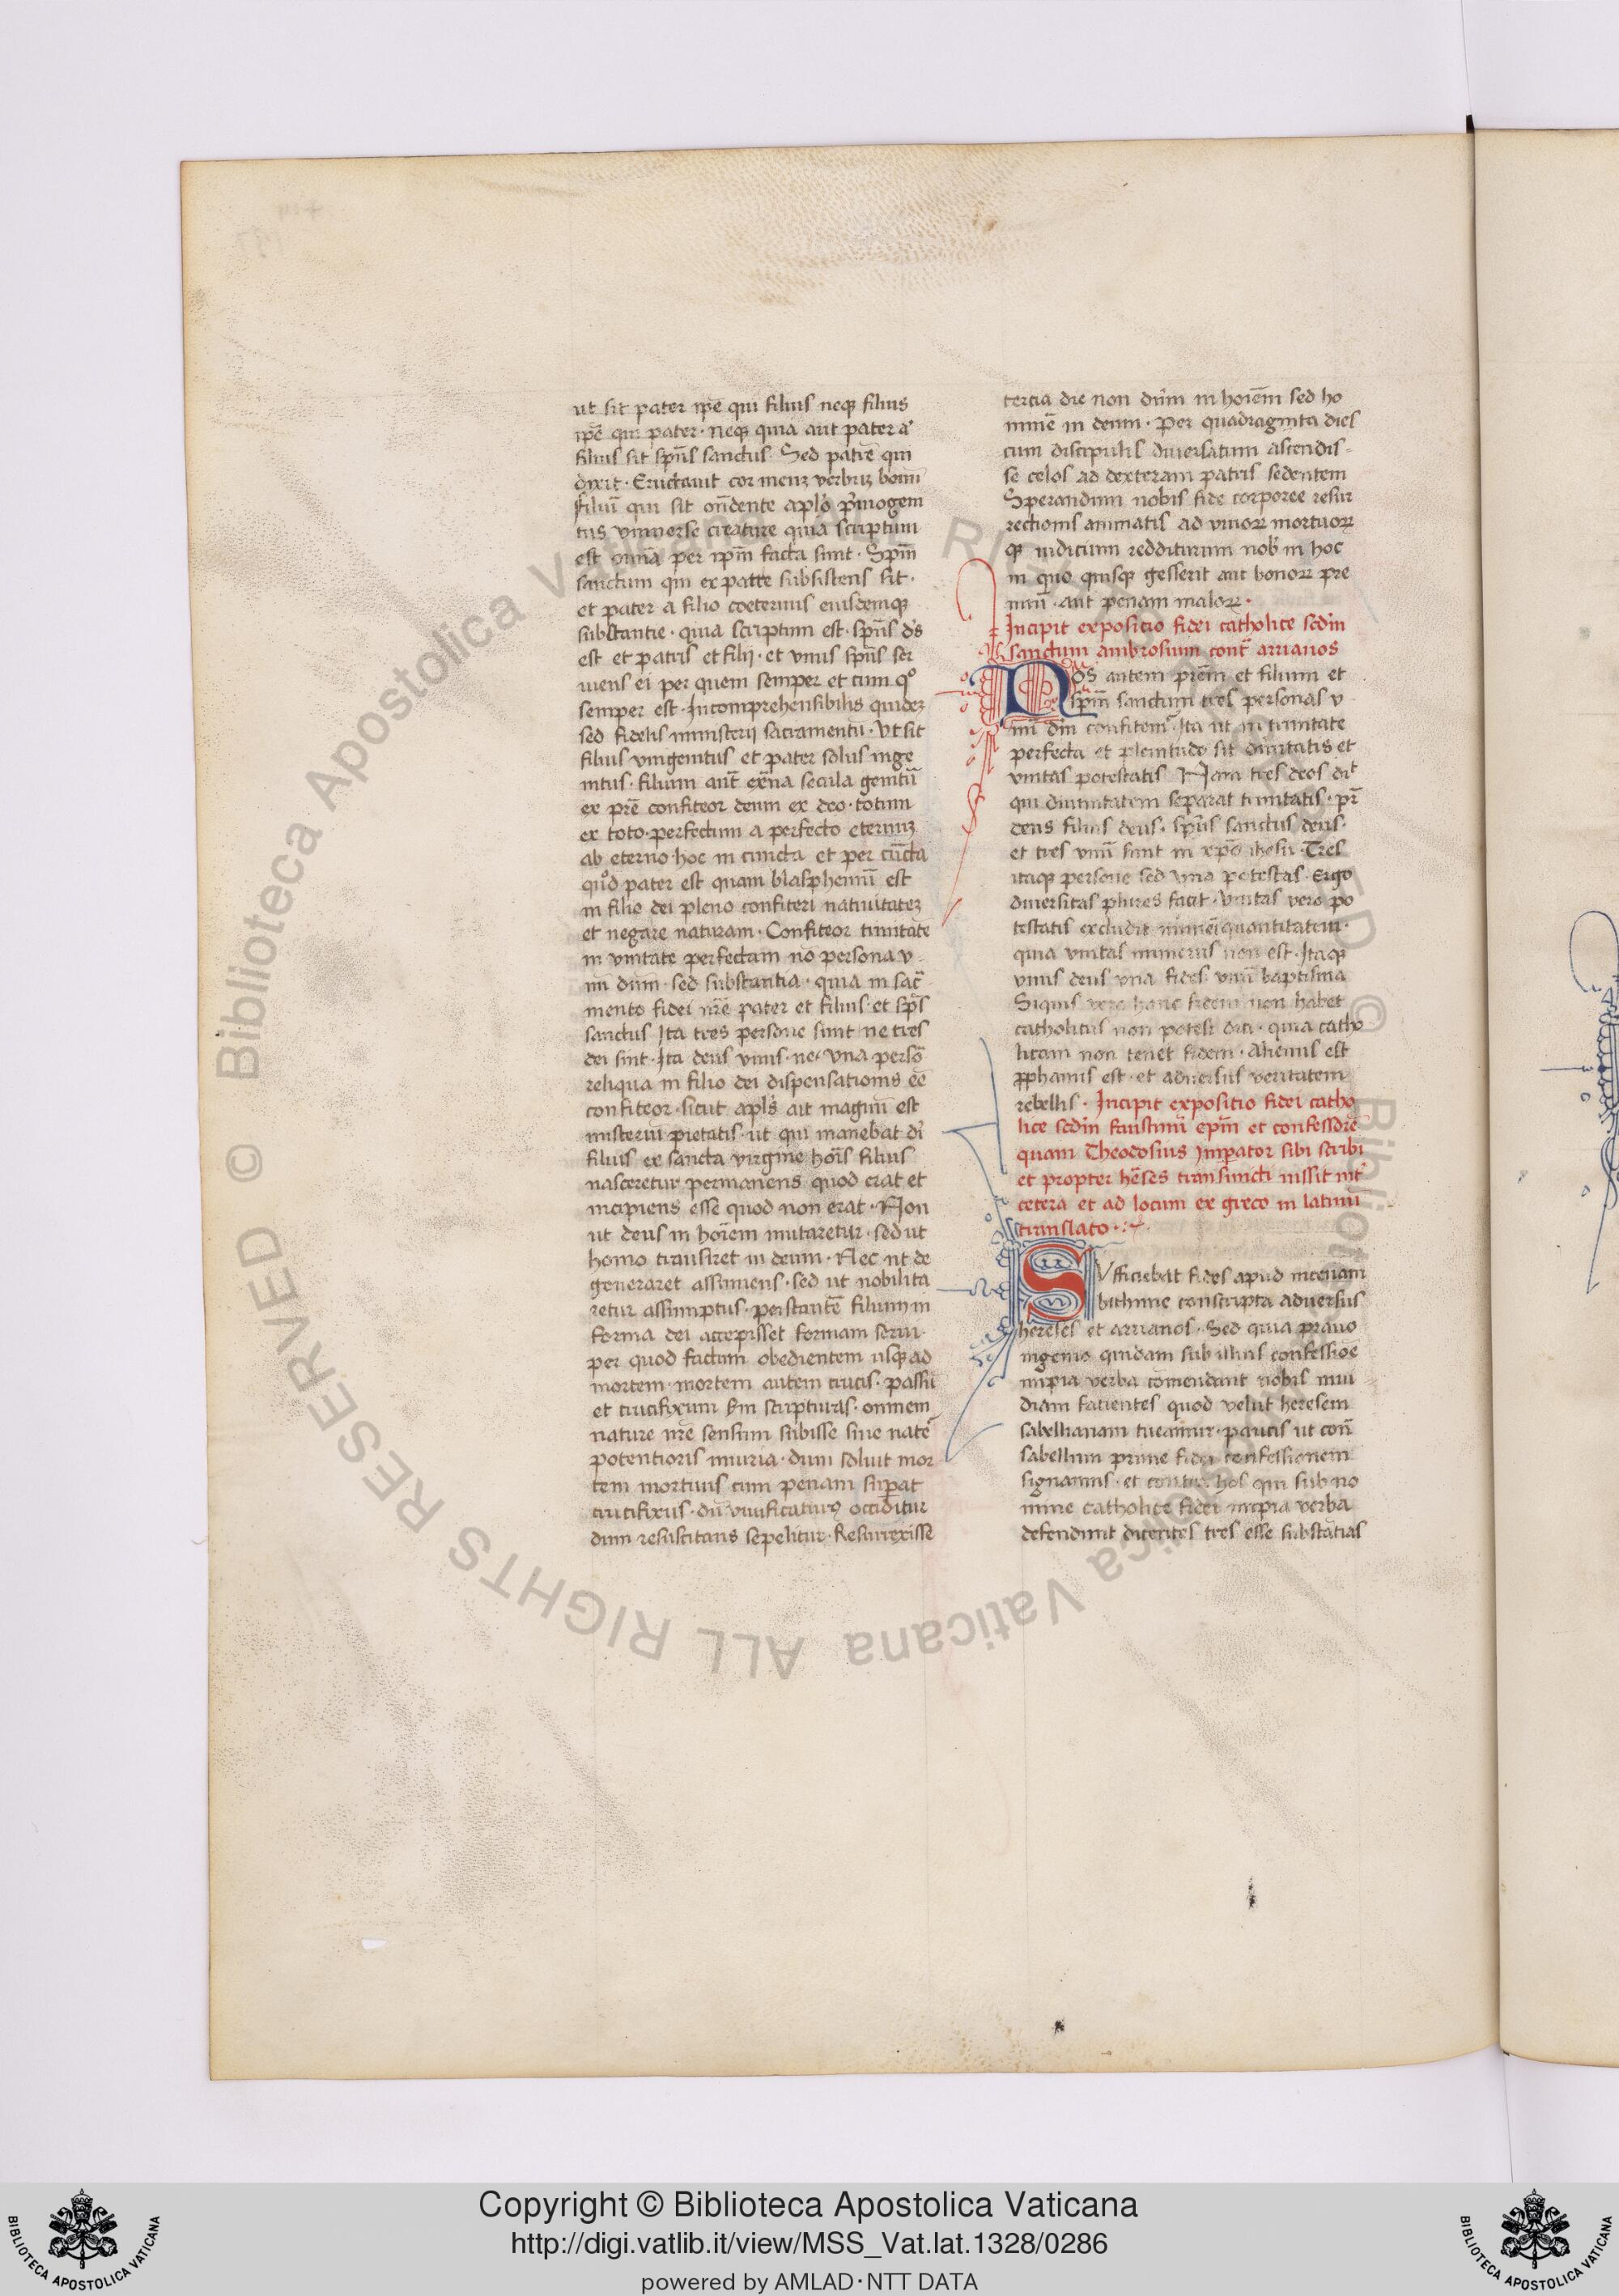 ut sit pater ip̄e qui filius neqꝫ filius
ip̄e qui pater · neqꝫ quia aut pater a'
filius sit sp̄us sanctus. Sed patrē qui
dixit · Eructauit cor meuꝫ verbuꝫ bonū
filiū qui sit on̄dente apl'o p̓mogeni
tus vniuerse creature quia scriptum
est omīa per ip̄m facta sunt · Sp̄m
sanctum qui ex patre subsistens sit ·
et pater a filio coeternus eiusdemqꝫ
substantie · quia scriptum est · sp̄us d's
est et patris et filij · et vnus sp̄us ser
uiens ei per quem semper et cum qͦ
semper est · Incomprehensibilis quideꝫ
sed fidelis ministerij sacramentū · Vt sit
filius vnigenitus et pater solus inge
nitus · filium aut̄ et̄na secula genitū
ex pr̄e confiteor deum ex deo · totum
ex toto · perfectum a perfecto eternuꝫ
ab eterno · hoc in cuncta et per cūcta
quod pater est quam blasphemū est
in filio dei pleno confiteri natiuitateꝫ
et negare naturam · Confiteor trinitatē
in vnitate perfectam nō persona v
nī dūm · sed substantia · quia in sac̄
mento fidei nr̄e pater et filius et sp̄s
sanctus Ita tres persone sunt ne tres
dei sint · Ita deus vnus · ne vna persō
reliqua in filio dei dispensationis eē
confiteor · sicut apl's ait magnū est
misteriū pietatis · ut qui manebat di
filius ex sancta virgine hoīs filius
nasceretur permanens quod erat et
incipiens esse quod non erat · Non
ut deus in hoīem mutaretur · sed ut
homo transiret in deum · Nec ut de
generaret assumens · sed ut nobilita
retur assumptus · perstantē filium in
forma dei accepisset formam serui ·
per quod factum obedientem usqꝫ ad
mortem · mortem autem crucis · passū
et crucifixum s̄m scripturas · omnem
nature nr̄e sensum subisse siue nat̄e
potentioris iniuria · dum soluit mor
tem mortuus cum penam sup̄at
crucifixus · dū viuificaturꝰ occiditur
dum resuscitans sepelitur · Resurrexisse
tercia die non dn̄m in hoīem sed ho
minē in deum · Per quadraginta dies
cum discipulis diuersatum ascendis-
se celos ad dexteram patris sedentem
Sperandum nobis fide corporee resur
rectionis animatis ad viuoꝝ mortuoꝝ
qꝫ iudicium redditurum nob' in hoc
in quo quisqꝫ gesserit aut bonoꝝ pre
miū · aut penam maloꝝ ·
Incipit expositio fidei catholice sed'm
sanctum ambrosium cont̄ arrianos
Nos autem pr̄em et filium et
sp̄m sanctum tres personas v
nū dn̄ confitemͬ Ita ut in trinitate
perfecta et plenitudo sit diuitatis et
vnitas potestatis Nam tres deos dit
qui diuinitatem separat trinitatis · pr̄
deus filius deus · sp̄us sanctus deus ·
et tres vnū sunt in xp̄o ihesu · Tres
itaqꝫ persone sed vna potestas · Ergo
diuersitas plures facit · vnitas vero po
testatis excludit numeri quantitatem ·
quia vnitas numerus non est · Itaqꝫ
vnus deus vna fides vnū baptisma
Siquis vero hanc fidem non habet
catholicus non potest dici · quia catho
licam non tenet fidem · Alienus est
ꝓphanus est · et aduersus veritatem
rebellis · Incipit expositio fidei catho
lice sed'm faustinū ep̄m et confessorē
quam Theodosius Imp̄ator sibi scribi
et propter heses transumcti iussit int̓
cetera et ad locum ex greco in latinū
translato · : ~
Sufficiebat fides apud niceuam
bithinie conscripta aduersus
hereses et arrianos · Sed quia prauo
ingenio quidam sub illius confessioe
impia verba comendant nobis inui
diam facientes quod velut heresem
sabellianam tueamur · paucis ut con̄
sabellium prime fidei confessionem
signamus · et contra hos qui sub no
mine catholice fidei impia verba
defendunt dicentes tres esse substātias
© Biblioteca Apostolica Vaticana ALL RIGHTS RESERVED
Copyright © Biblioteca Apostolica Vaticana
http://digi.vatlib.it/view/MSS_Vat.lat.1328/0286
powered by AMLAD·NTT DATA
BIBLIOTECA APOSTOLICA VATICANA
BIBLIOTECA APOSTOLICA VATICANA